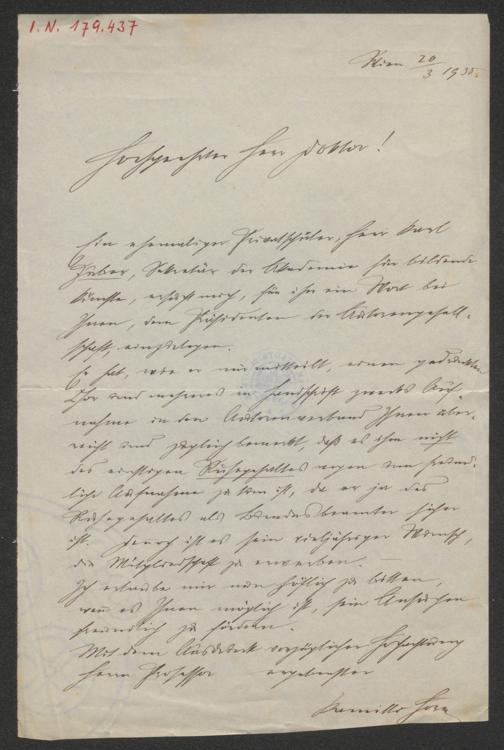 I.N. 179.437
Wien 20/3 1935.
Hochgeehrter Herr Doktor!
Ein ehemaliger Privatschüler, Herr Karl
Huber, Sekretär der Akademie für bildende
Künste, ersucht mich, für ihn ein Wort bei
Ihnen, dem Präsidenten der Autorengesell-
schaft, einzulegen.
Er hat, wie er mir mitteilt, einen gedruckten
Chor und mehreres in Handschrift zwecks Auf-
nahme in den Autorenverband Ihnen über-
reicht und zugleich bemerkt, daß es ihm nicht
des einstigen Ruhegehaltes wegen um freund-
liche Aufnahme zu tun ist, da er ja des
Ruhegehaltes als Bundesbeamter sicher
ist. Jedoch ist es sein vieljähriger Wunsch,
die Mitgliedschaft zu erwerben. –
Ich erlaube mir nun höflich zu bitten,
wenn es Ihnen möglich ist, sein Ansuchen
freundlich zu fördern.
Mit dem Ausdruck vorzüglicher Hochachtung
Herrn Professor ergebenster
Kamillo Horn